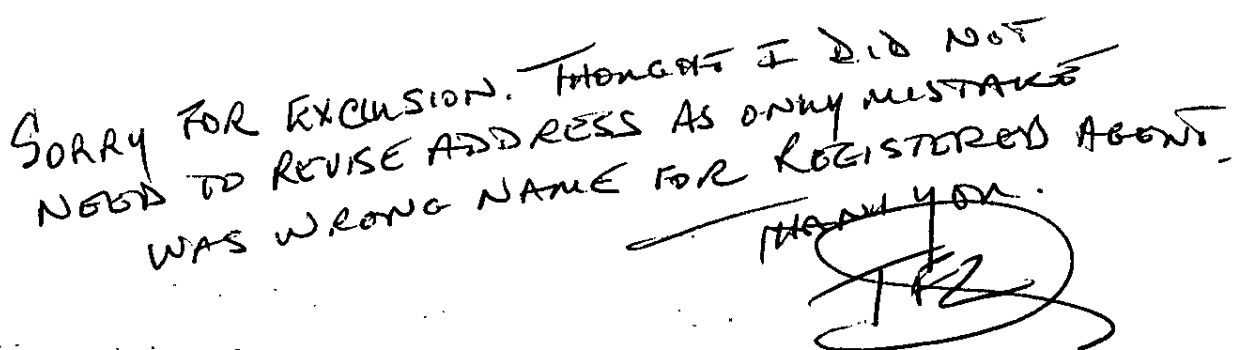 SORRY FOR EXCLUSION. THOUGHT I DID NOT
NEED TO REVISE ADDRESS AS ONLY MISTAKE
WAS WRONG NAME FOR REGISTERED AGENT.
THANK YOU.